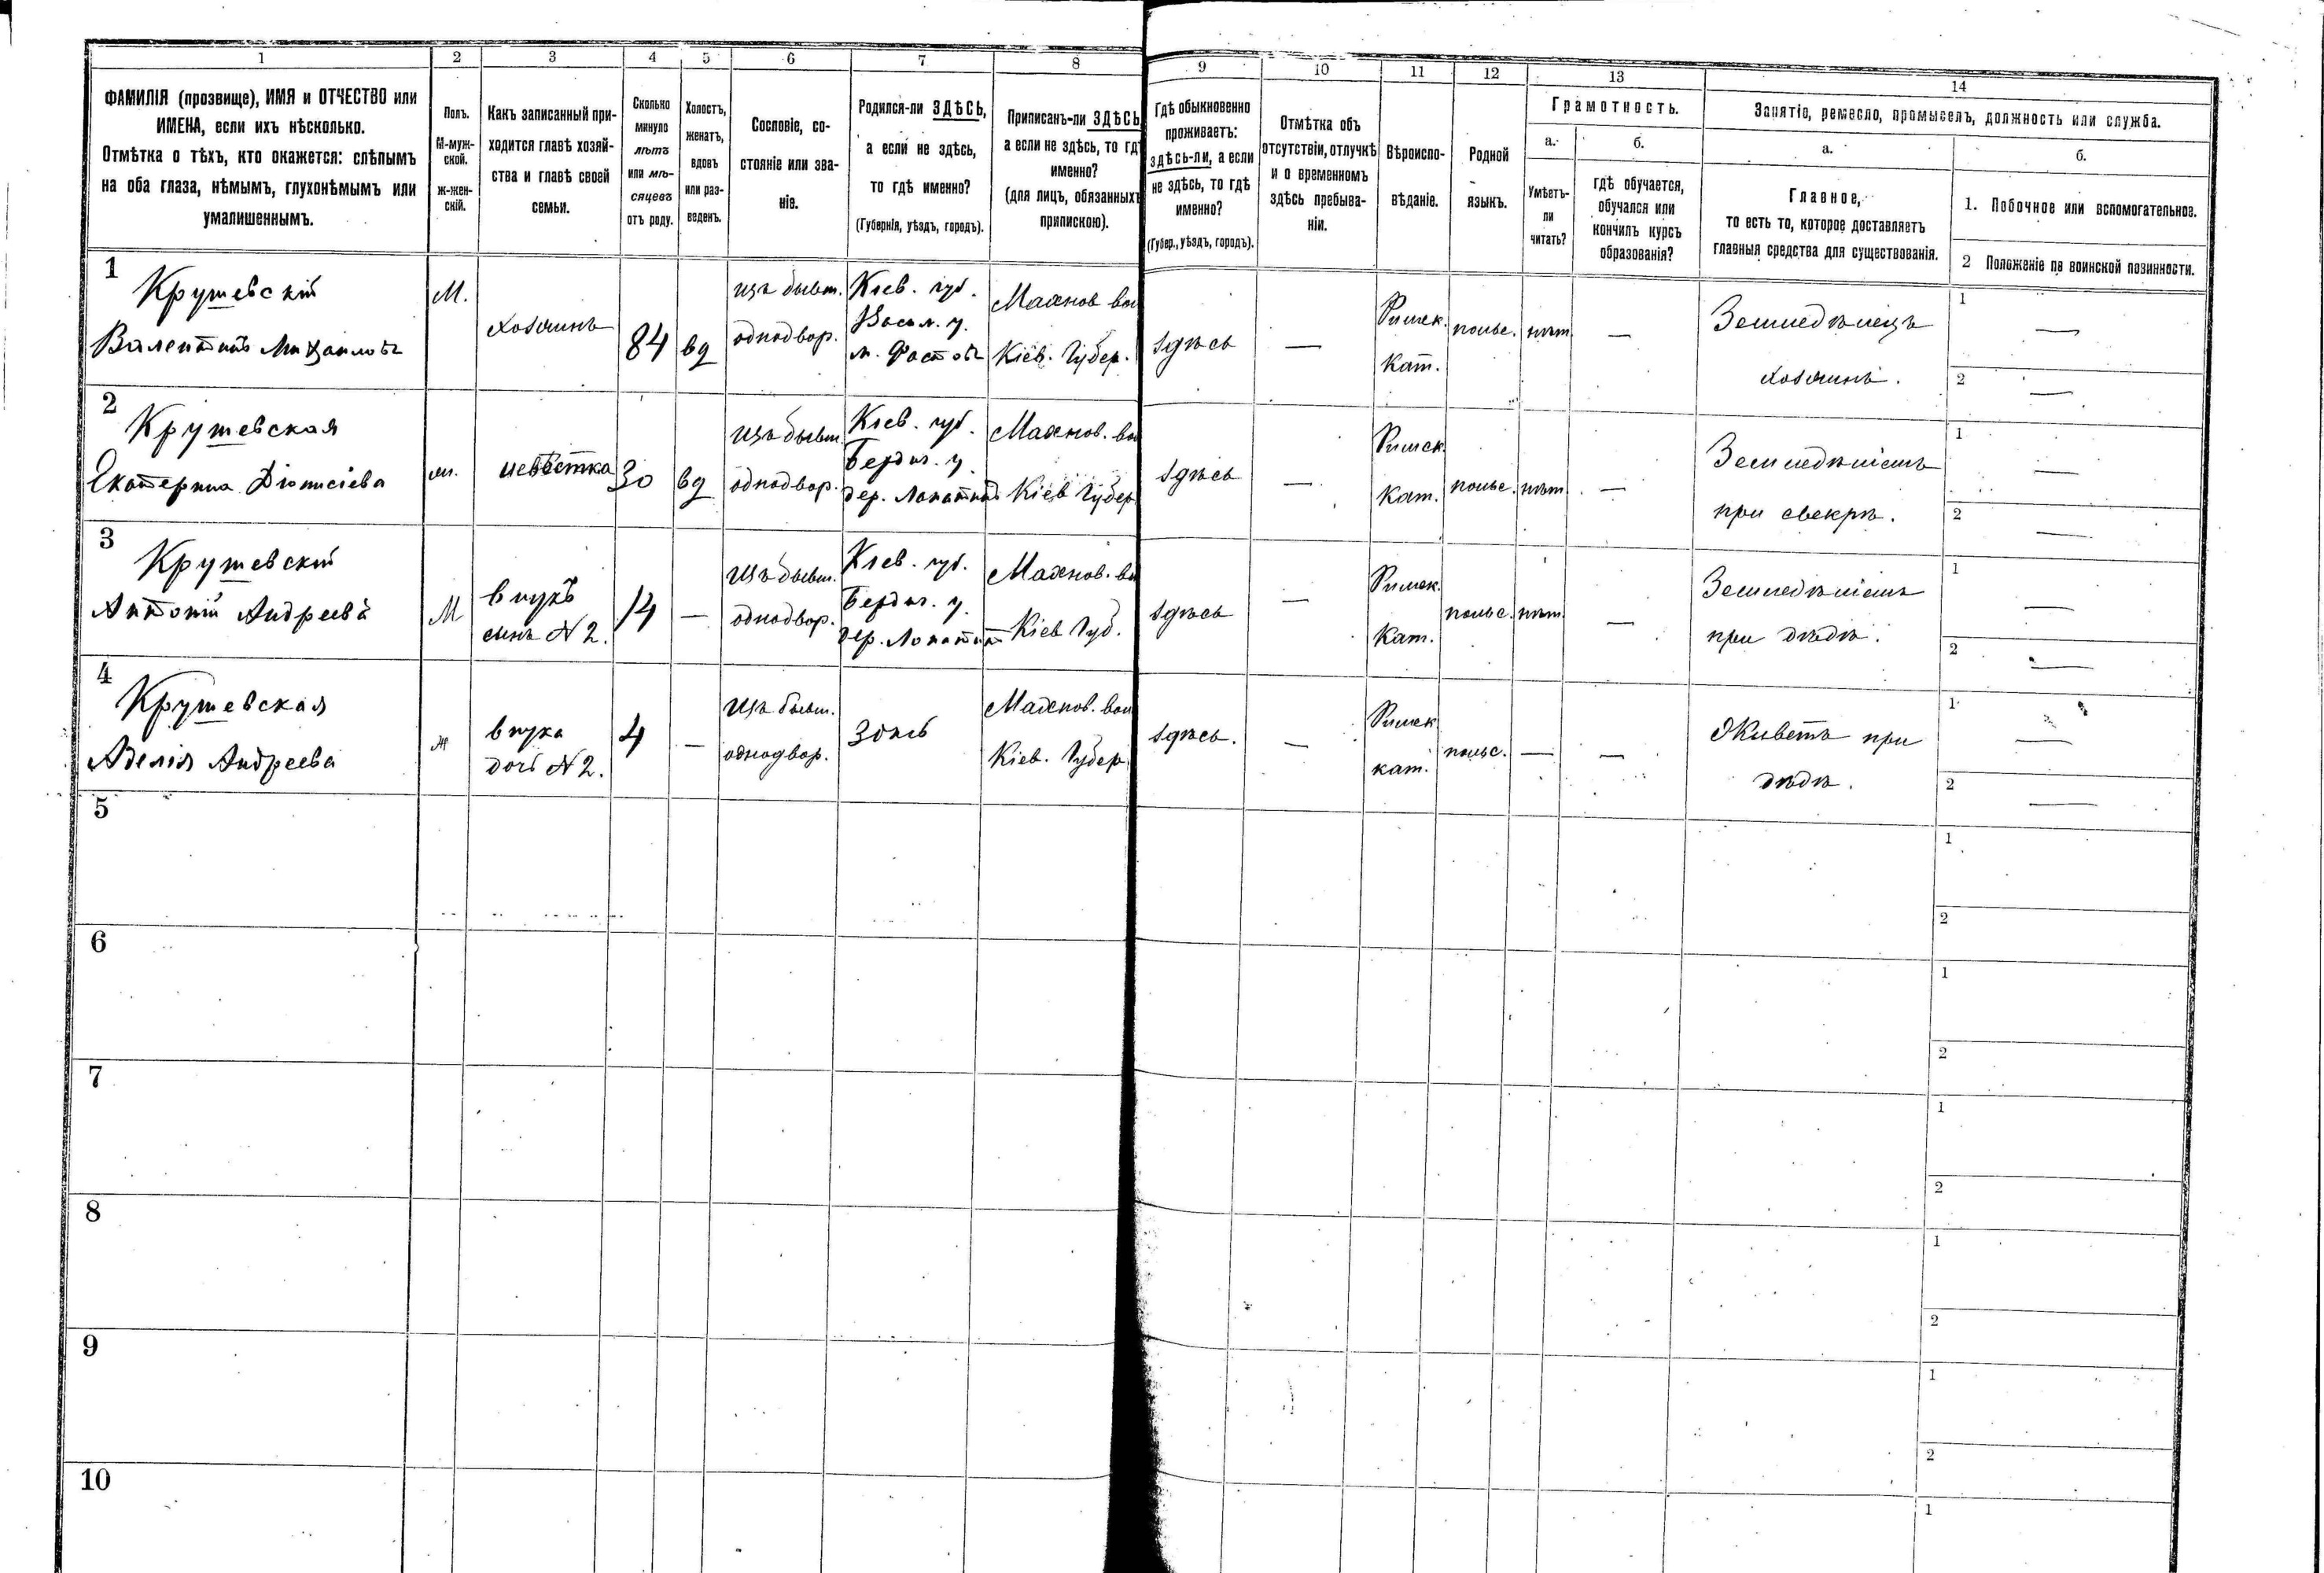 1 2 3 4 5 6 7 8 9 10 11 12 13 14
ФАМИЛІЯ (прозвище), ИМЯ и ОТЧЕСТВО или
ИМЕНА, если ихъ нѣсколько.
Отмѣтка о тѣхъ, кто окажется: слѣпымъ
на оба глаза, нѣмымъ, глухонѣмымъ или
умалишеннымъ.
Полъ.
М-муж-
ской.
ж-жен-
скій.
Какъ записанный при-
ходится главѣ хозяй-
ства и главѣ своей
семьи.
Сколько
минуло
лѣтъ
или мѣ-
сяцевъ
отъ роду.
Холостъ,
женатъ,
вдовъ
или раз-
веденъ.
Сословіе, со-
стояніе или зва-
ніе.
Родился-ли ЗДѢСЬ,
а если не здѣсь,
то гдѣ именно?
(Губернія, уѣздъ, городъ).
Приписанъ-ли ЗДѢСЬ
а если не здѣсь, то гд
именно?
(для лицъ, обязанныхъ
припискою).
Гдѣ обыкновенно
проживаетъ:
здѣсь-ли, а если
не здѣсь, то гдѣ
именно?
(Губер., уѣздъ, городъ).
Отмѣтка объ
отсутствіи, отлучкѣ
и о временномъ
здѣсь пребыва-
ніи.
Вѣроиспо-
вѣданіе.
Родной
языкъ.
Грамотность.
а.
Умѣетъ-
ли
читать?
б.
гдѣ обучается,
обучался или
кончилъ курсъ
образованія?
Занятіе, ремесло, промыселъ, должность или служба.
а.
Главное,
то есть то, которое доставляетъ
главныя средства для существованія.
б.
1. Побочное или вспомогательное.
2 Положеніе по воинской повинности.
1
Крушевскій
Валентинъ Михаиловъ
М.
хозяинъ
84
вд
изъ бывш.
однодвор.
Кіев. губ.
Васил. у.
м. Фастовъ
Махнов вол
Кіев. Губер.
здѣсь
—
Римск.
Кат.
польс.
нѣт
—
Земледѣлецъ
хозяинъ.
1 —
2 —
2
Крушевская
Екатерина Діонисіева
ж.
невѣстка
30
вд
изъ бывш.
однодвор.
Кіев. губ.
Бердич. у.
дер. Лопатинъ
Махнов. во
Кіев Губер
здѣсь
—
Римск
Кат.
польс.
нѣт
—
Земледѣліемъ
при свекрѣ.
1 —
2 —
3
Крушевскій
Антоній Андреевъ
М
внукъ
сынъ N 2.
14
—
Изъ бывш.
однодвор.
Кіев. губ.
Бердич. у.
дер. Лопатин
Махнов. во
Кіев Губ.
здѣсь
—
Римск.
Кат.
польс.
нѣт.
—
Земледѣліемъ
при дѣдѣ.
1 —
2 —
4
Крушевская
Аделія Андреева
ж
внука
дочь N 2.
4
—
Изъ бывш.
однодвор.
Здѣсь
Махнов. вол
Кіев. Губер
здѣсь.
—
Римск
кат.
польс.
—
—
Живетъ при
дѣдѣ.
1 —
2 —
5
1
2
6
1
2
7
1
2
8
1
2
9
1
2
10
1